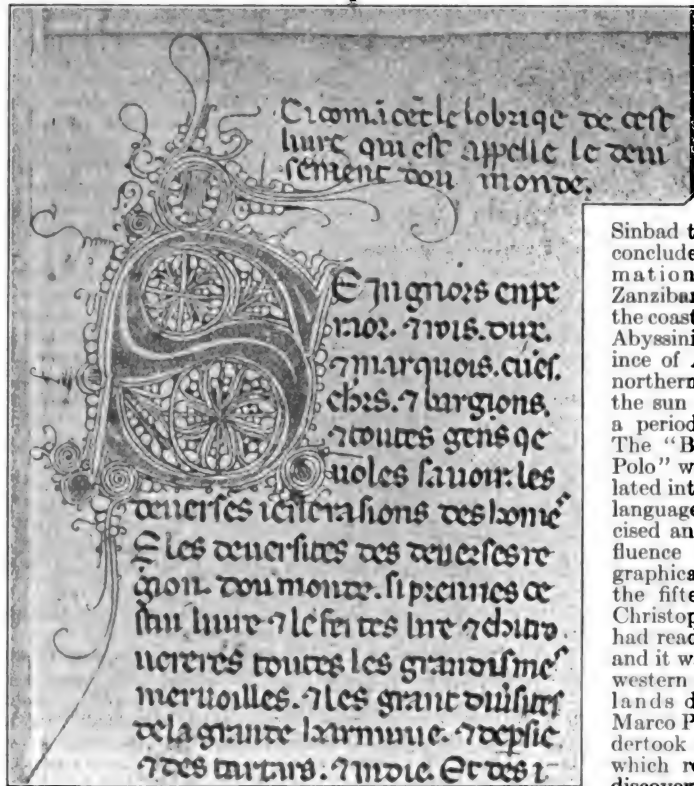 Ci comācēt le lobriqe de cest
liure qui est appelle le deui
sement dou monde.
SEingnors enpe
raor. ⁊ rois. dux.
⁊ marquois. cuēs.
chrs. ⁊ bargions.
⁊ toutes gens qe
uoles sauoir. les
deuerses ienerasions des home
E les deuersites des deuerses re
gion. dou monde. si prennes ce
stui liure ⁊ le feites lire ⁊ chi tro
ueres toutes les grandismes
meruoilles. ⁊ les grant diuisites
de la grande harminie. ⁊ de psie
⁊ des tartars. ⁊ indie. Et des i
Sinbad t
conclude
mation
Zanzibar
the coast
Abyssini
ince of
northern
the sun
a period
The “B
Polo” w
lated int
language
cised an
fluence
graphica
the fifte
Christop
had read
and it w
western
lands d
Marco P
dertook
which r
discover